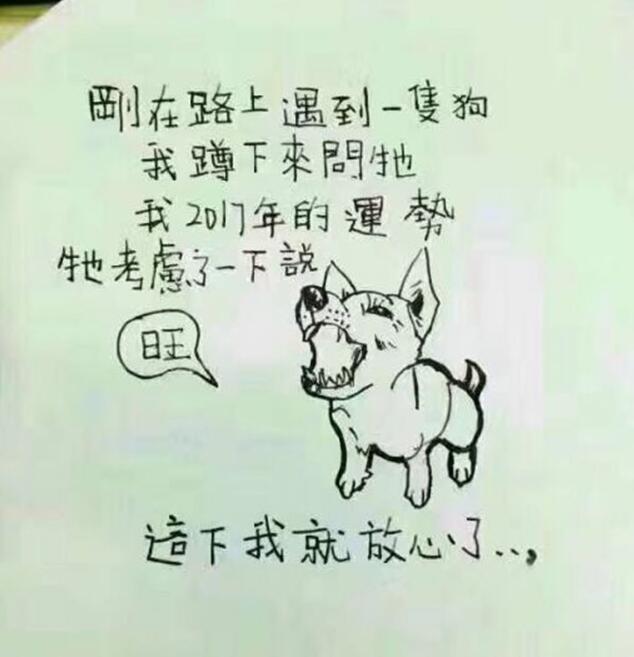 剛在路上遇到一隻狗
我蹲下來問牠
我2017年的運勢
牠考慮了一下說
旺
這下我就放心了...,